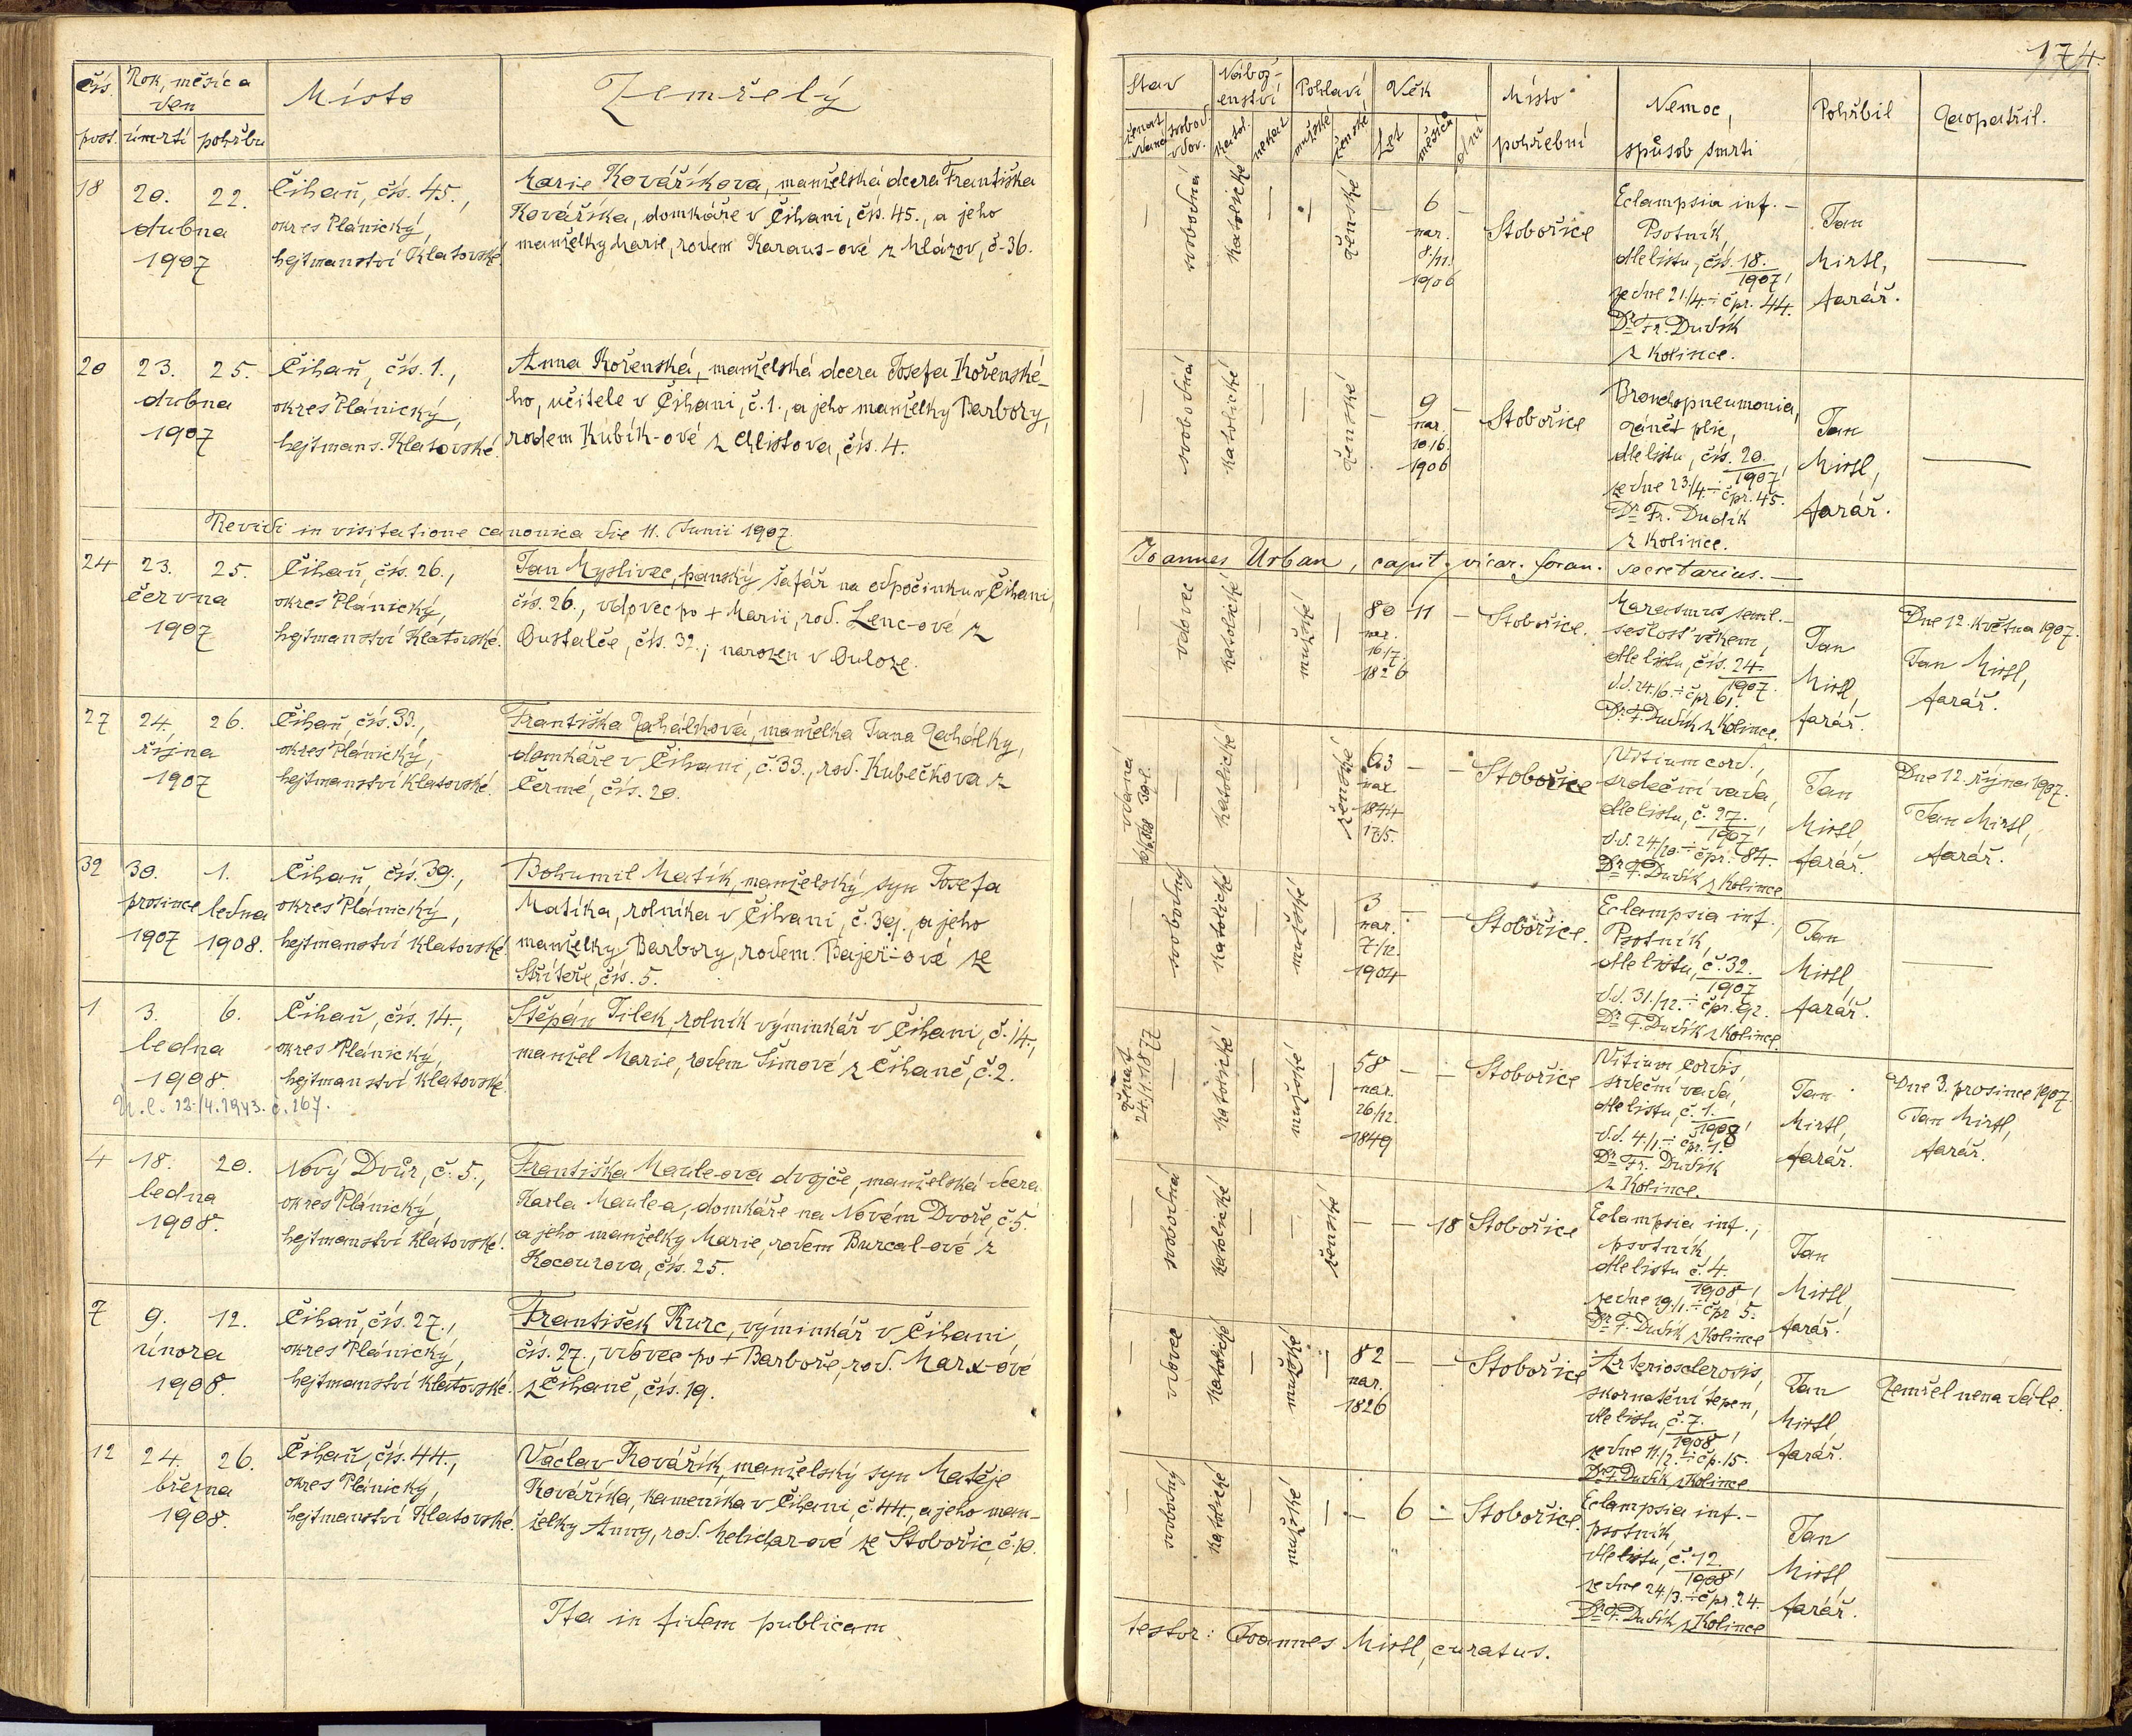 174.
čís. Rok, měsíc a den Místo Zemřelý
post. úmrtí pohřbu
Stav Nábož- Pohlaví Věk Místo Nemoc, Pohřbil Zaopatřil.
enství
pohřební způsob smrti
ženat svobod. vdov. katol. nekat. mužské ženské Let měsíců dní
18 20. 22. Čihaň, čís. 45., Marie Kovaříkova, manželská dcera Františka
dubna okres Plánický, Kovaříka, domkáře v Čihani, čís. 45., a jeho
1907 hejtmanství Klatovské. manželky Marie, rodem Karaus-ové z Mlázov, č. 36.
— svobodná katolické — — ženské — 6 — Stobořice Eclampsia inf. —
nar. Psotník Jan
8./11. dle listu, čís. 18. Mirtl,
1906 1907,
ze dne 21/4. čpr. 44. farář. —
Dr. Fr. Dudík
z Kolince.
20 23. 25. Čihaň, čís. 1., Anna Kořenská, manželská dcera Josefa Kořenské-
dubna okres Plánický, ho, učitele v Čihani, č. 1., a jeho manželky Barbory,
1907 hejtmans. Klatovské. rodem Kubík-ové z Chlistova, čís. 4.
— svobodná katolické — — ženské — 9 — Stobořice Bronchopneumonia,
nar. zánět plic, Jan
10/6. dle listu, čís. 20. Mirtl,
1906 1907,
ze dne 23./4. čpr. 45. farář. —
Dr. Fr. Dudík
z Kolince.
Revidi in visitatione canonica die 11. Junii 1907.
Joannes Urban, capit. vicar. foran. secretarius. —
24 23. 25. Čihaň, čís. 26., Jan Myslivec, panský šafář na odpočinku v Čihani,
června okres Plánický, čís. 26., vdovec po + Marii, rod. Lenc-ové z
1907 hejtmanství Klatovské. Oustalče, čís. 32.; narozen v Ouloze.
— vdovec katolické — mužské — 80 11 — Stobořice. Marasmus senil. —
nar. sešlost věkem, Jan Dne 12. května 1907.
16/7. dle listu, čís. 24. Mirtl, Jan Mirtl,
1826 1907.
d.d. 24/6. čpr. 61. farář. farář.
Dr. F. Dudík z Kolince.
27 24. 26. Čihaň, čís. 33., Františka Zahálková, manželka Jana Zahálky,
října okres Plánický, domkáře v Čihani, č. 33., rod. Kubečkova z
1907 hejtmanství Klatovské. Čermé, čís. 20.
vdaná — katolické — — ženské 63 — — Stobořice Vitium cord.,
nar. srdeční vada, Jan Dne 12. října 1907.
1844 dle listu, č. 27. Mirtl, Jan Mirtl,
17/5. 1907,
d.d. 24/10. čpr. 84. farář. farář.
Dr. F. Dudík z Kolince.
32 30. 1. Čihaň, čís. 39., Bohumil Matík, manželský syn Josefa
prosince ledna okres Plánický, Matíka, rolníka v Čihani, č. 39., a jeho
1907 1908. hejtmanství Klatovské. manželky Barbory, rodem Bajer-ové ze
Stříteře, čís. 5.
— svobodný katolické — mužské — 3 — — Stobořice. Eclampsia inf.,
nar. Psotník, Jan
7/12. dle listu, č. 32. Mirtl, —
1904 1907
d.d. 31./12. čpr. 92. farář.
Dr. F. Dudík z Kolince.
1 3. 6. Čihaň, čís. 14., Štěpán Jílek, rolník výminkář v Čihani, č. 14.,
ledna okres Plánický, manžel Marie, rodem Šimové z Čihaně, č. 2.
1908. hejtmanství Klatovské.
12./4. 1943. č. 167.
ženat 24./4. 1877 — katolické — mužské — 58 — — Stobořice Vitium cordis,
nar. srdeční vada, Jan Dne 3. prosince 1907.
26/12. dle listu, č. 1. Mirtl, Jan Mirtl,
1849 1908,
d.d. 4./1. čpr. 1. farář. farář.
Dr. Fr. Dudík
z Kolince.
4 18. 20. Nový Dvůr, č. 5., Františka Maule-ova dvojče, manželská dcera
ledna okres Plánický, Karla Maulea, domkáře na Novém Dvoře, č. 5.
1908. hejtmanství Klatovské. a jeho manželky Marie, rodem Burcal-ové z
Kocourova, čís. 25.
— svobodná katolické — — ženské — — 18 Stobořice Eclampsia inf.,
psotník, Jan
dle listu č. 4. Mirtl, —
1908,
ze dne 19./1. čpr. 5. farář.
Dr. F. Dudík z Kolince
7 9. 12. Čihaň, čís. 27., František Kurc, výminkář v Čihani
února okres Plánický, čís. 27., vdovec po + Barboře, rod. Marx-ové
1908. hejtmanství Klatovské. z Čihaně, čís. 19.
— vdovec katolické — mužské — 82 — — Stobořice Arteriosclerosis,
nar. skornatění tepen, Jan Zemřel nenadále.
1826 dle listu, č. 7. Mirtl,
1908,
ze dne 11/2. čp. 15. farář.
Dr. F. Dudík z Kolince
12 24. 26. Čihaň, čís. 44., Václav Kovářík, manželský syn Matěje
března okres Plánický, Kovaříka, kameníka v Čihani, č. 44., a jeho man-
1908. hejtmanství Klatovské. želky Anny, rod. Melichar-ové ze Stobořic, č. 10.
— svobodný katolické — mužské — — 6 — Stobořice. Eclampsia inf. —
psotník, Jan
dle listu, č. 12. Mirtl —
1908,
ze dne 24/3. čpr. 24. farář.
Dr. F. Dudík z Kolince
Ita in fidem publicam
testor: Joannes Mirtl, curatus.